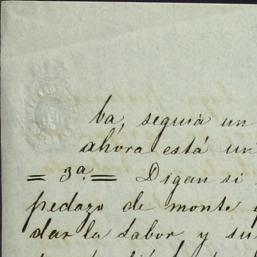 ba, seguia un
ahora está un
= 3ª = Digan si
pedazo de monte
dar la labor y su